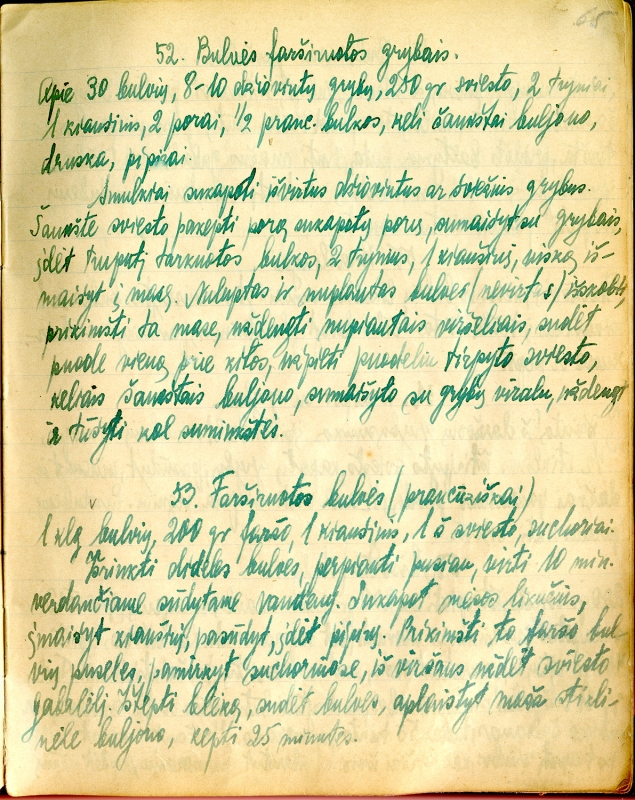 68
52. Bulvės farširuotos grybais.
Apie 30 bulvių, 8-10 džiovintų grybų, 250 gr sviesto, 2 tryniai,
1 kiaušinis, 2 porai, 1/2 pranc. bulkos, keli šaukštai buljono,
druska, pipirai.
Smulkiai sukapoti išvirtus džiovintus ar šviežius grybus.
Šaukšte sviesto pakepti porą sukapotų porų, sumaišyt su grybais,
įdėt truputį tarkuotos bulkos, 2 trynius, 1 kiaušinį, viską iš-
maišyt į masę. Nuluptas ir nuplautas bulves (nevirtas) išskobti,
prikimšti ta mase, uždengti nupjautais viršeliais, sudėt
puode vieną prie kitos, užpilti puodeliu tirpyto sviesto,
keliais šaukštais buljono, sumaišyto su grybų viralu, uždengt
ir tušyti kol suminkštės.
53. Farširuotos bulvės (prancūziškai)
1 klg bulvių, 200 gr faršo, 1 kiaušinis, 1 š sviesto, suchoriai.
Prinkti dideles bulves, perpjauti pusiau, virti 10 min.
verdančiame sūdytame vandenyj. Sukapot mėsos likučius,
įmaišyt kiaušinį, pasūdyt, įdėt pipirų. Prikimšti to faršo bul-
vių puseles, pamirkyt suchoriuose, iš viršaus uždėt sviesto
gabalėlį. Ištepti blėką, sudėt bulves, aplaistyt maža stikli-
nėle buljono, kepti 25 minutes.